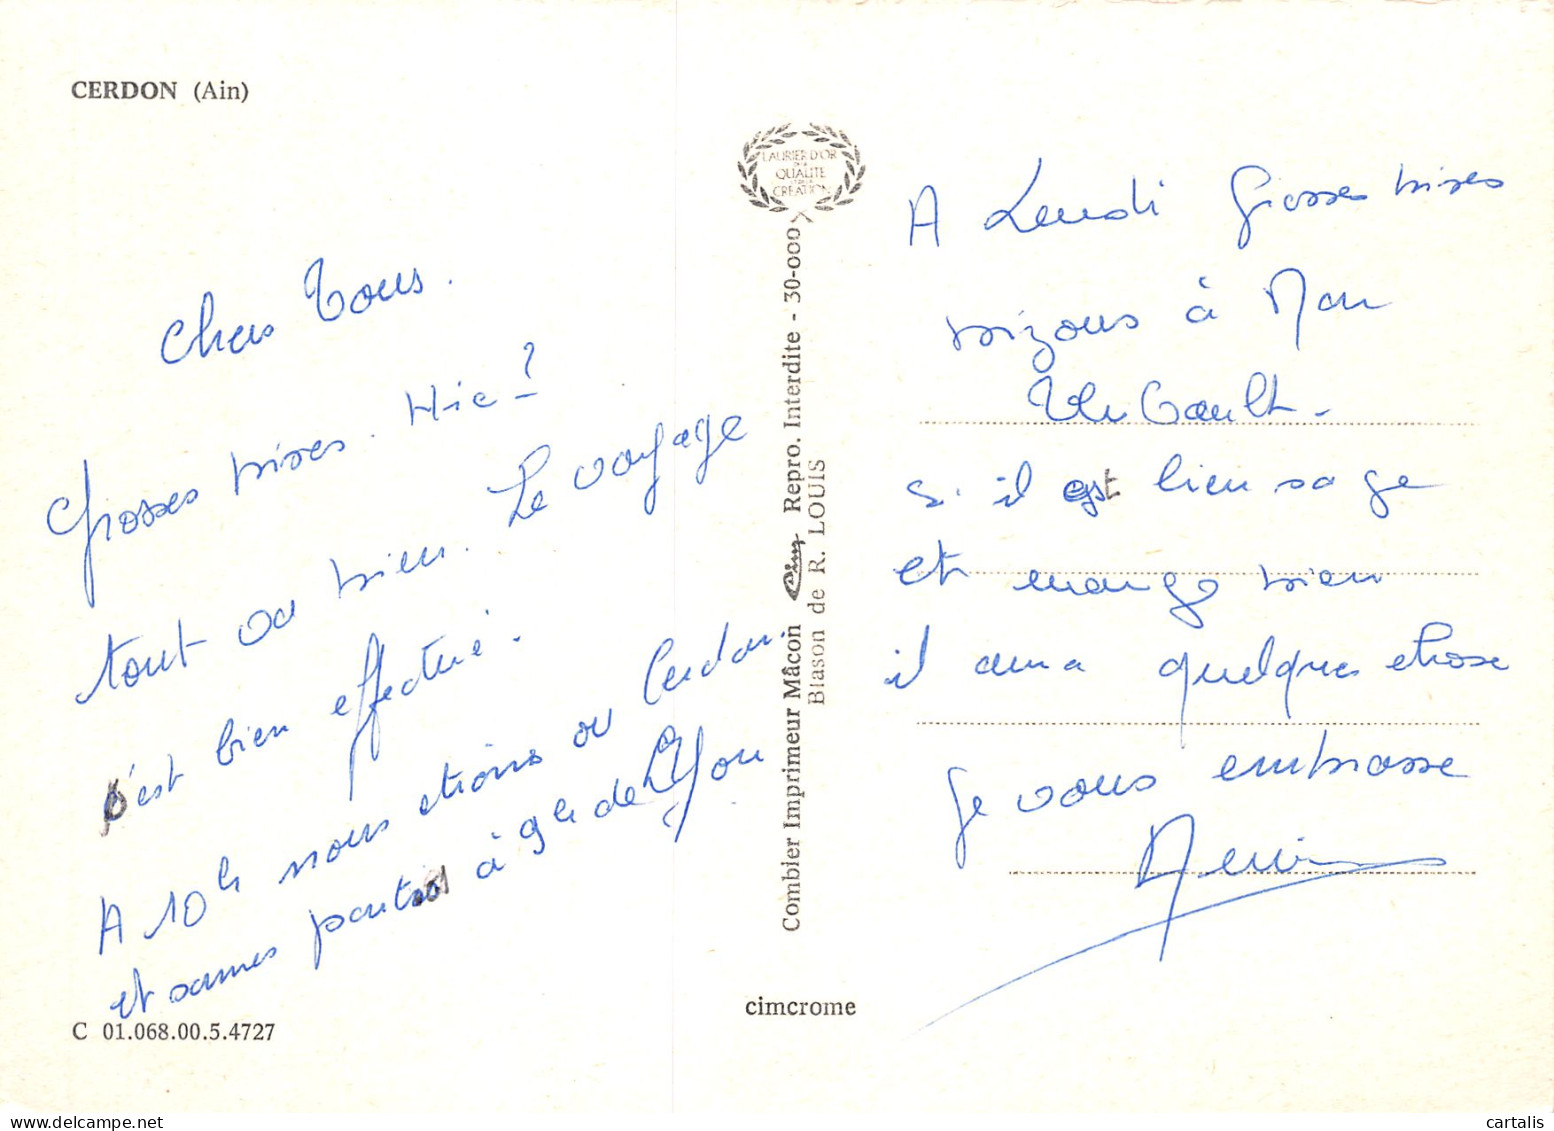 CERDON (Ain)
Chers Tous.
Grosses bises.
tout va bien. Le voyage
s'est bien effectué.
A 10h nous étions au Cerdon.
et sommes partis à 9h de Lyon
C 01.068.00.5.4727
LAURIER D'OR
DE LA
QUALITE
ET DE LA
CREATION
Combier Imprimeur Mâcon Cim Repro. Interdite - 30-000
Blason de R. LOUIS
cimcrome
A Lundi Grosses bises
bizous à Mon
si il est bien sage
et mange bien
il aura quelques chose
Je vous embrasse